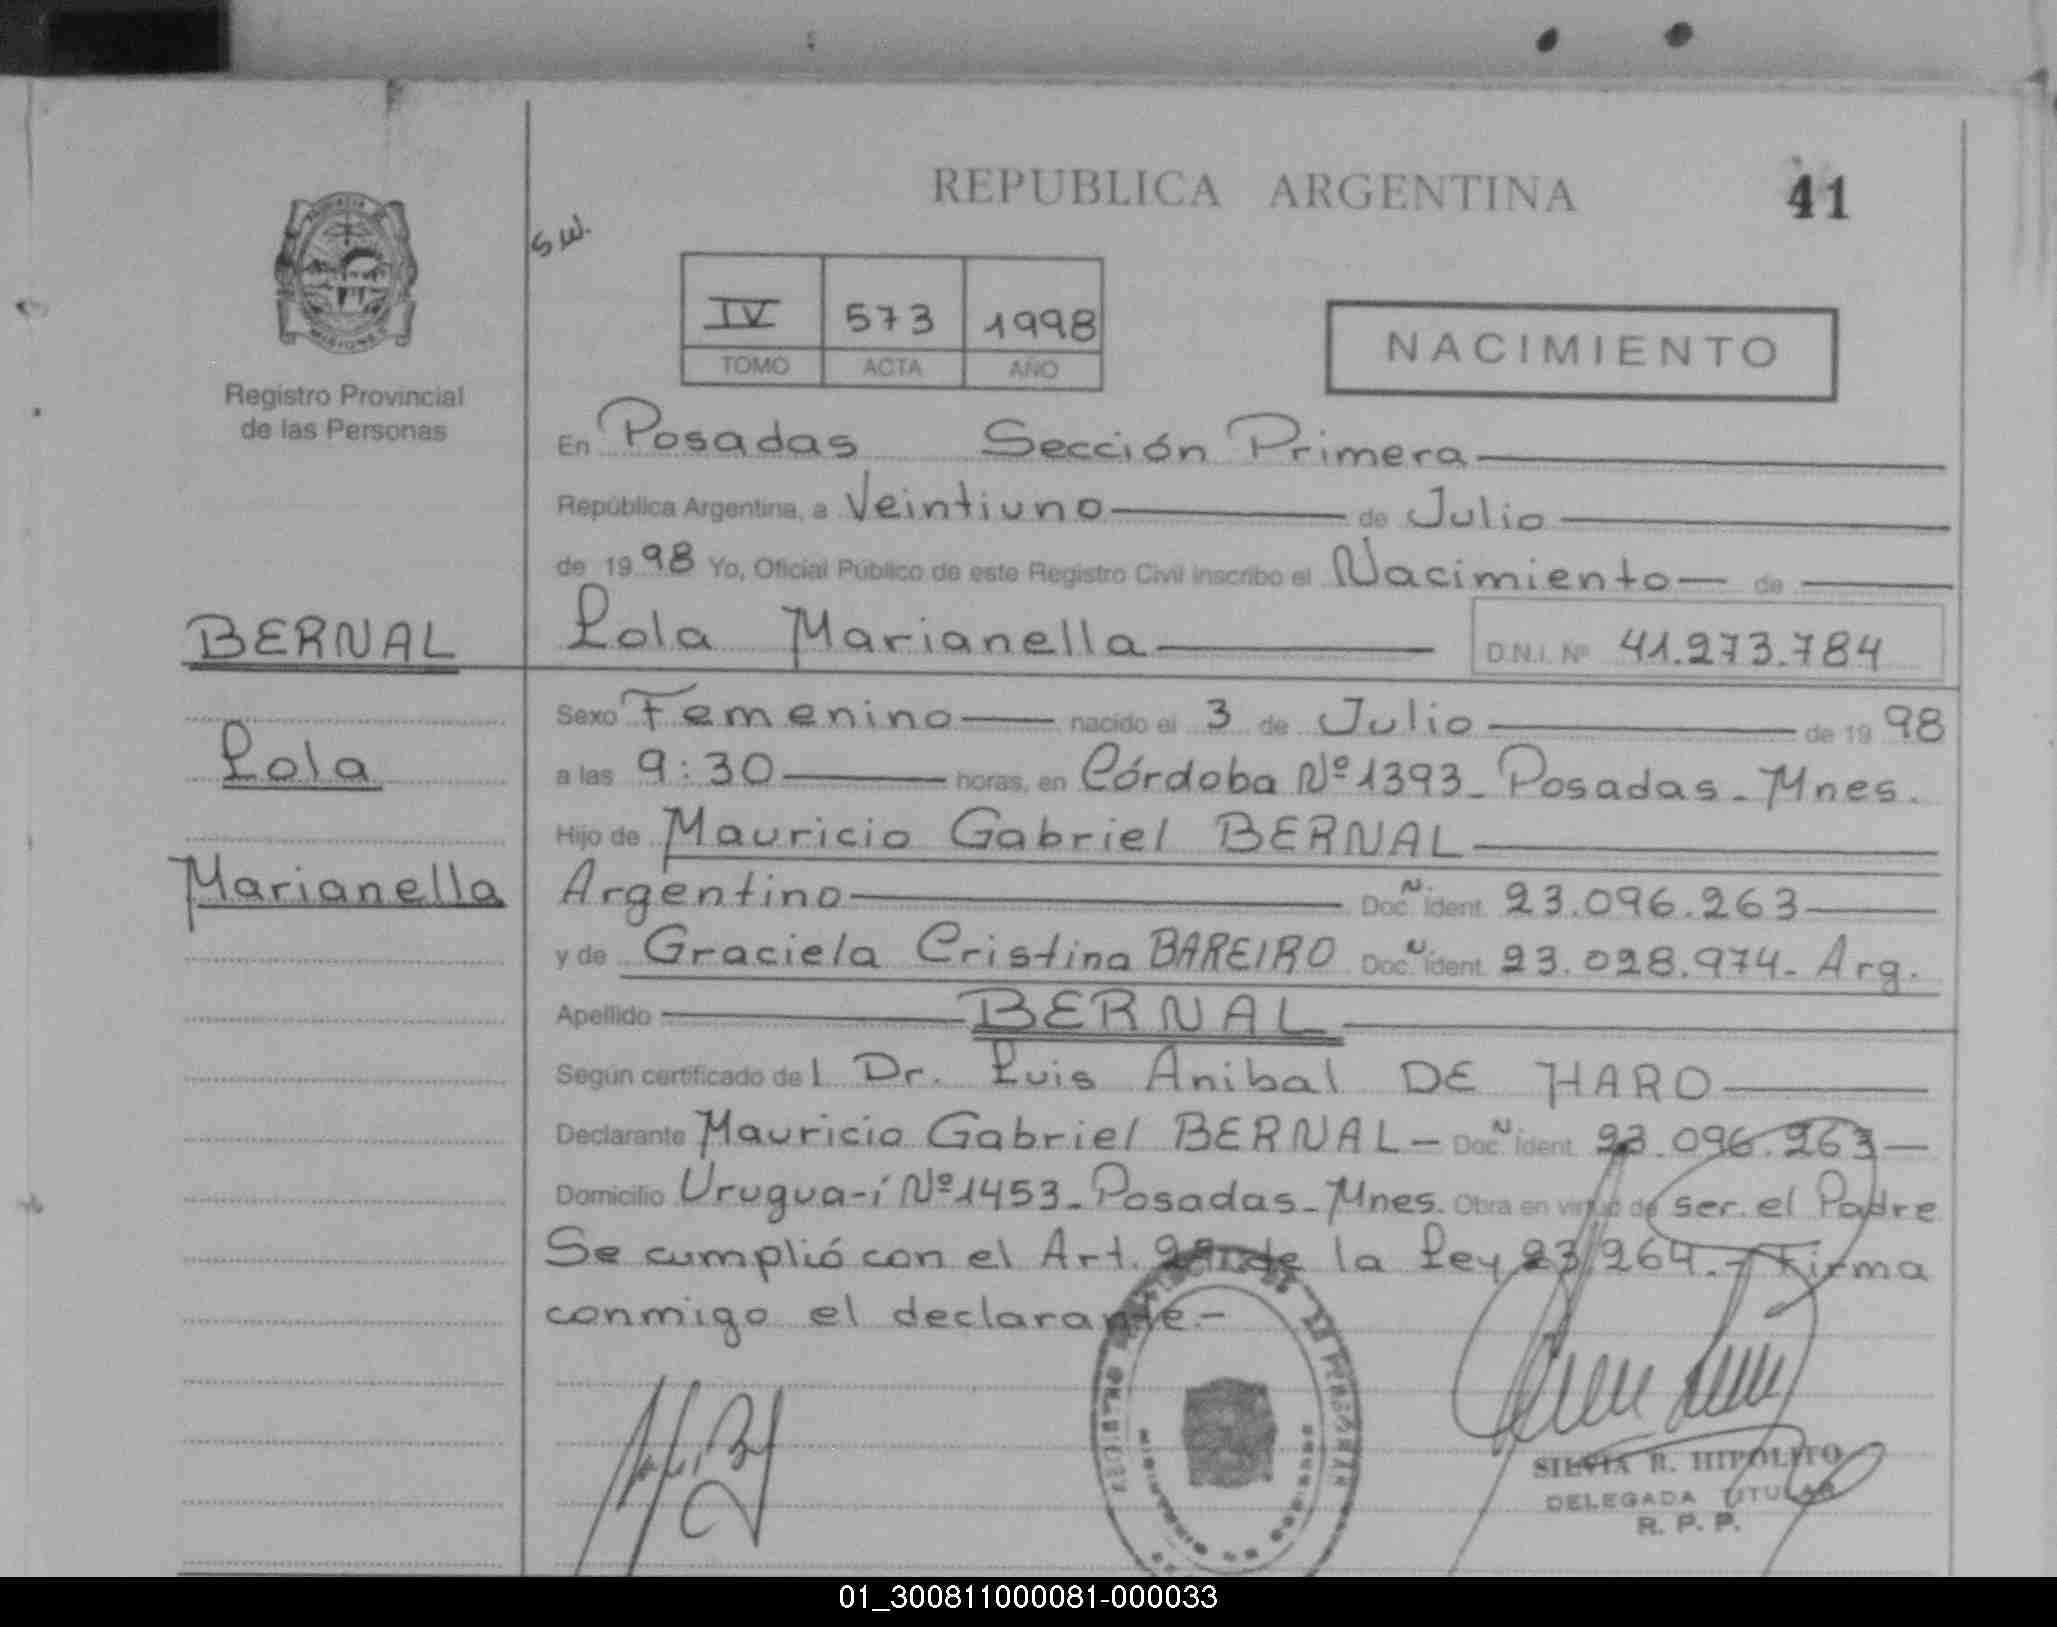 REPUBLICA ARGENTINA
41
s.w.
IV 573 1998
TOMO ACTA AÑO
NACIMIENTO
Registro Provincial
de las Personas
En Posadas Sección Primera
República Argentina, a Veintiuno de Julio
de 1998 Yo, Oficial Público de este Registro Civil inscribo el Nacimiento de
BERNAL
Lola Marianella D.N.I. Nº 41.273.784
Sexo Femenino nacido el 3 de Julio de 1998
Lola
a las 9:30 horas, en Córdoba Nº 1393_ Posadas_ Mnes.
Hijo de Mauricio Gabriel BERNAL
Marianella
Argentino Doc. Ident. 23.096.263
y de Graciela Cristina BAREIRO Doc. Ident. 23.028.974_ Arg.
Apellido BERNAL
Según certificado del Dr. Luis Anibal DE HARO
Declarante Mauricio Gabriel BERNAL Doc. Ident. 23.096.263
Domicilio Urugua-í Nº 1453_ Posadas_ Mnes. Obra en virtud de ser el Padre
Se cumplió con el Art. de la Ley 23.264.- Firma
conmigo el declarante.-
SILVIA R. HIPOLITO
DELEGADA TITULAR
R. P. P.
01_300811000081-000033